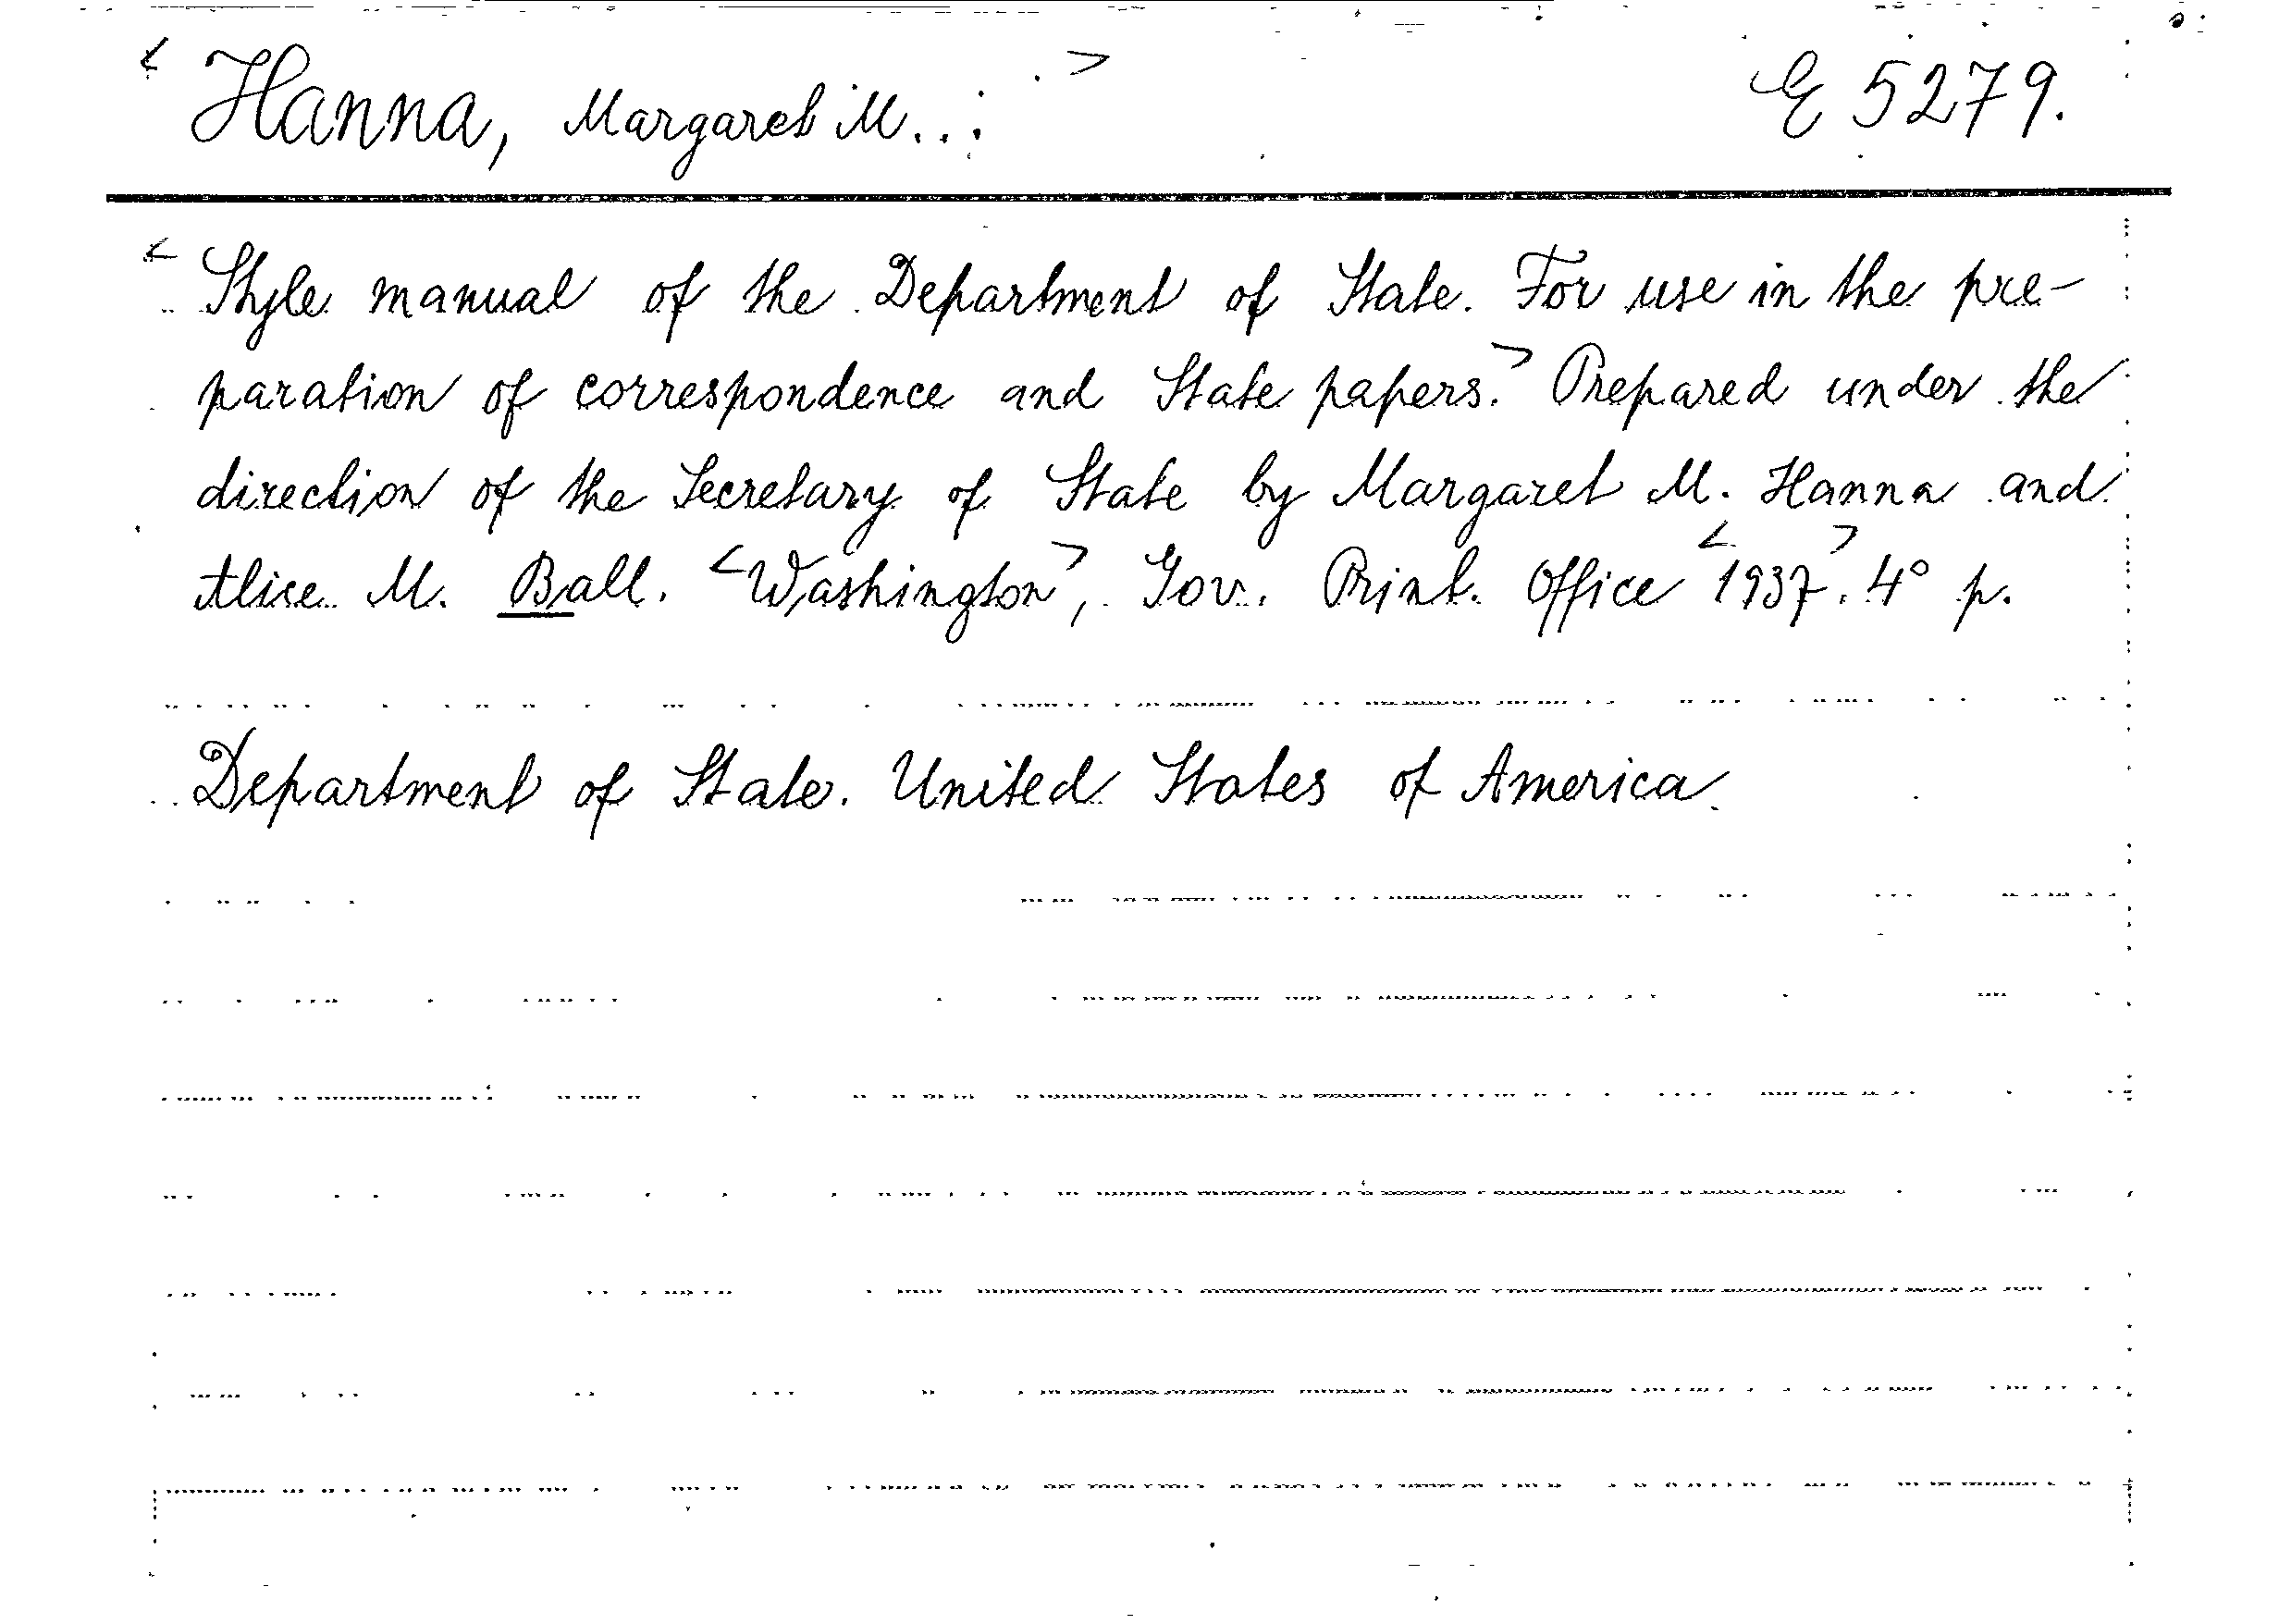 < Hanna, Margaret M..: > E 5279.
< Style manual of the Department of State. For use in the pre-
paration of correspondence and State papers.> Prepared under the
direction of the Secretary of State by Margaret M. Hanna and
Alice M. Ball. <Washington>, Gov. Print. Office <1937>. 4° p.
Department of State. United States of America.